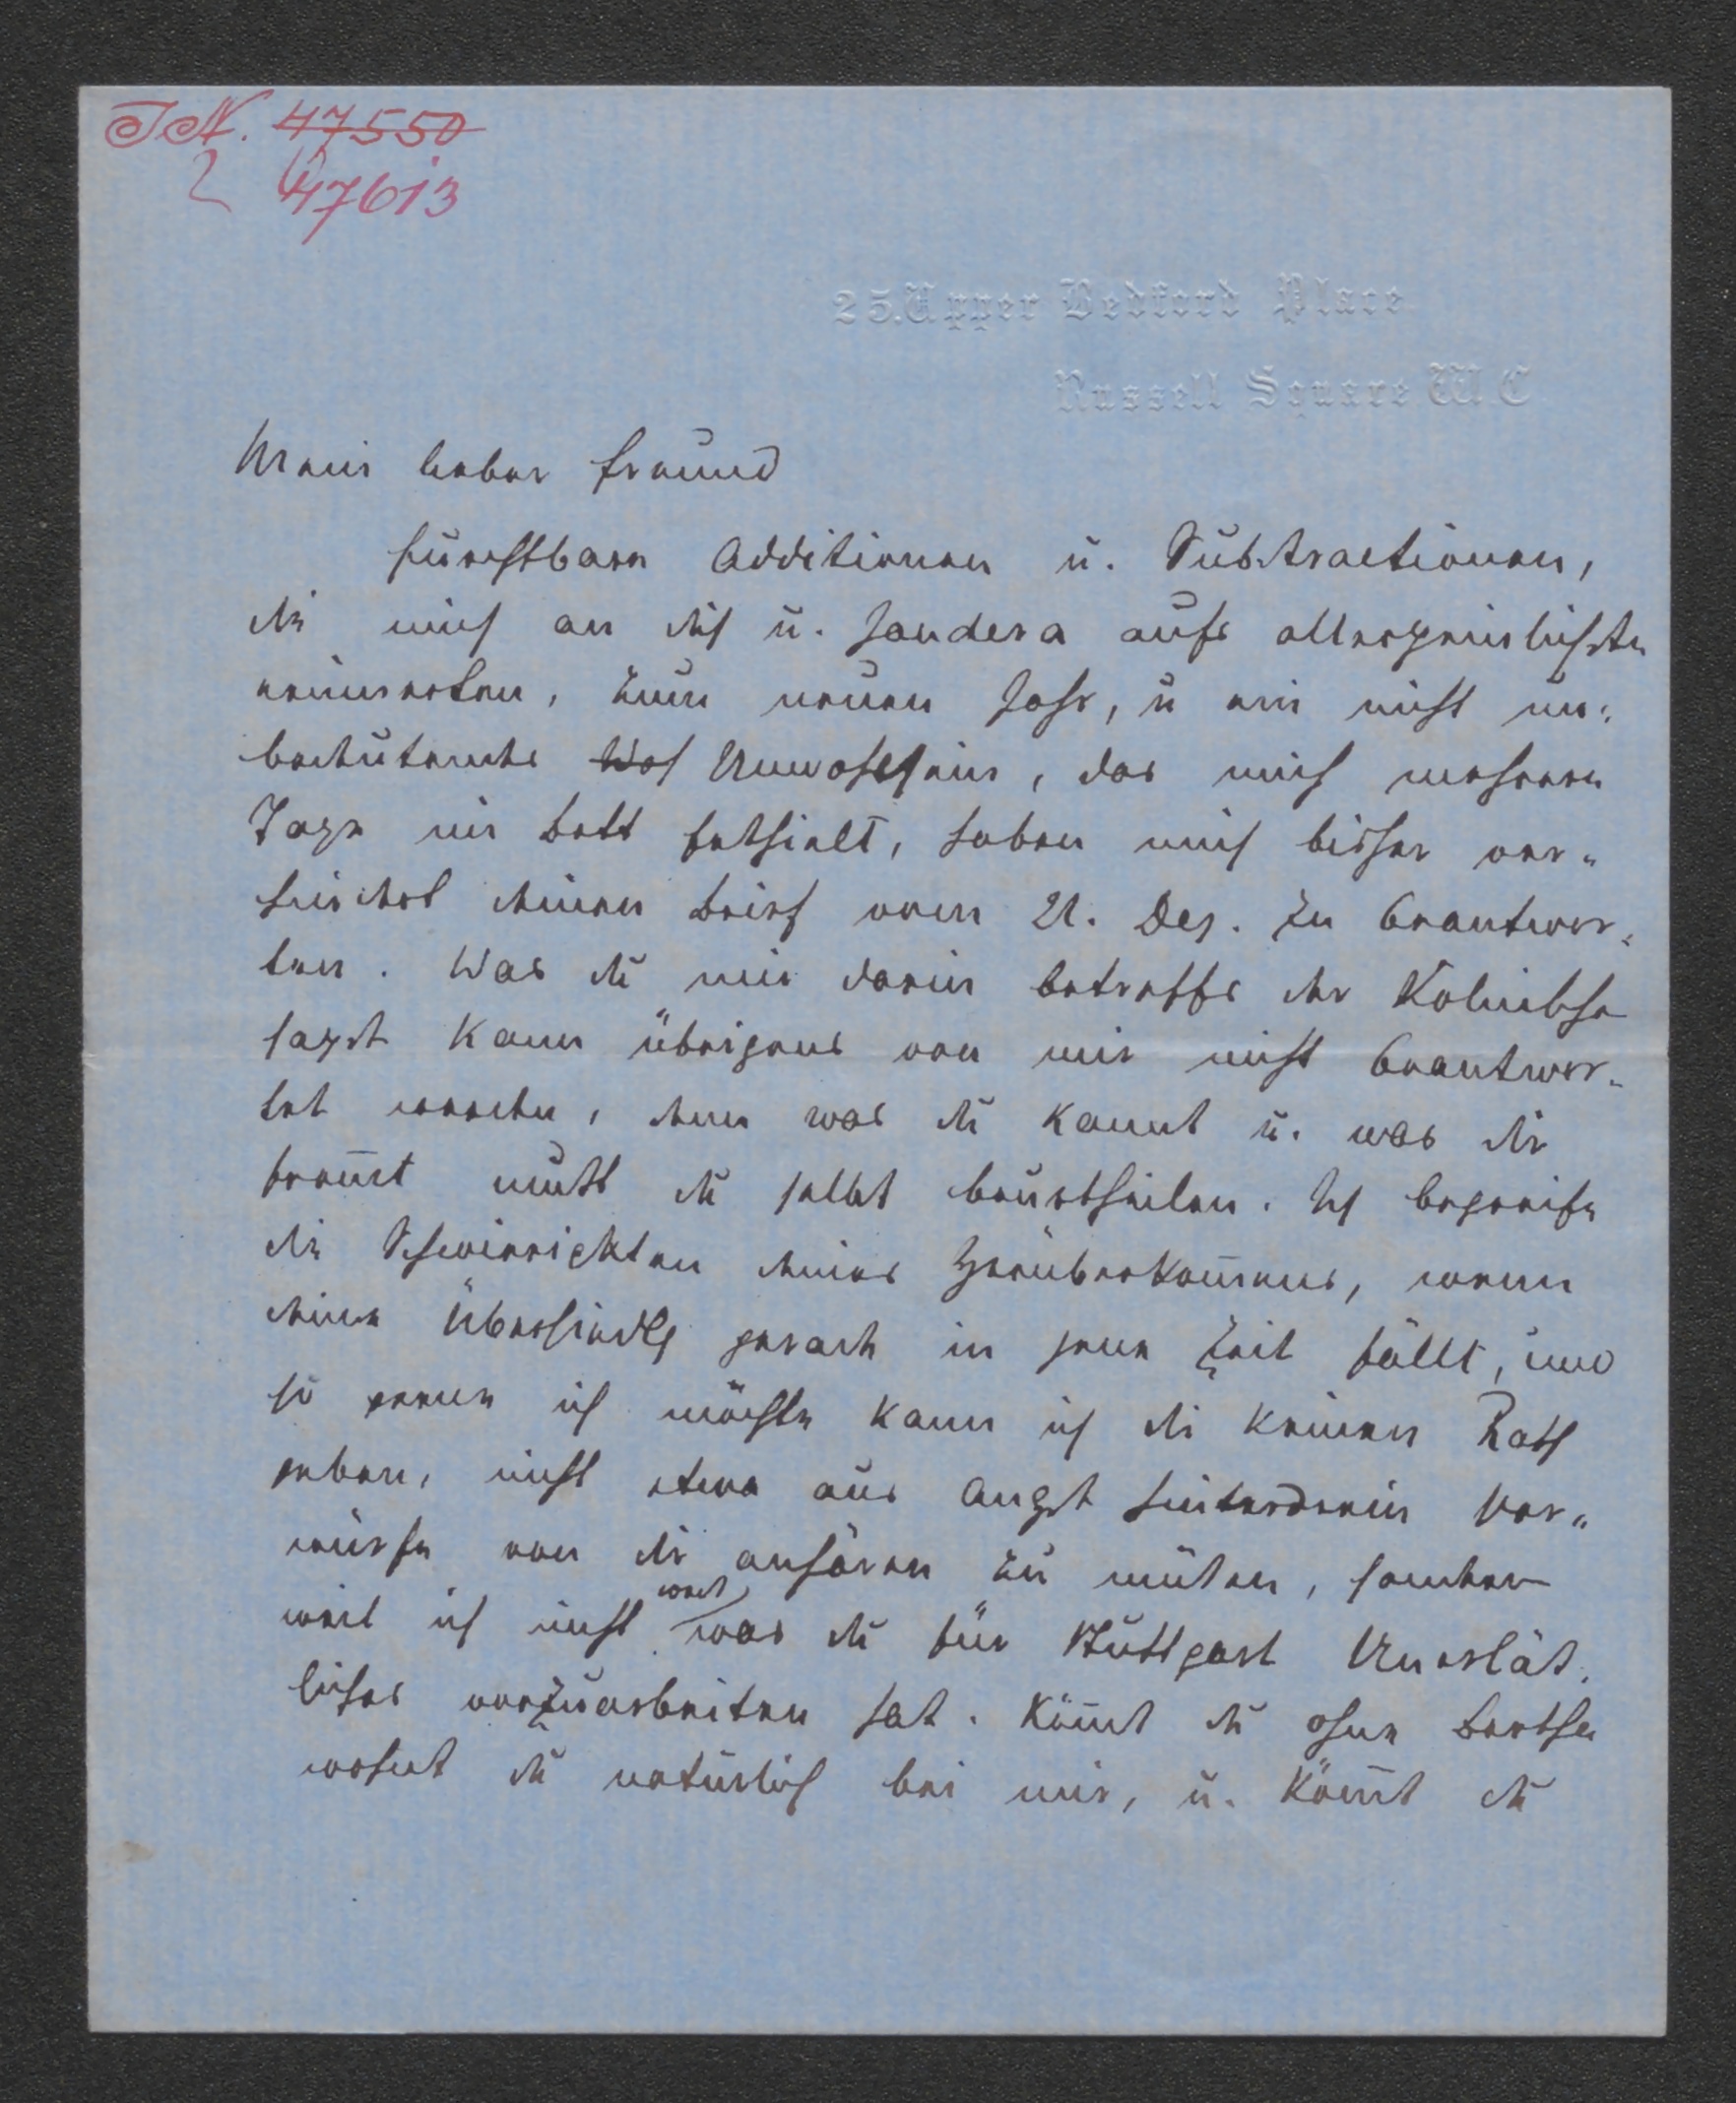 I. N. 47550
47613
25. Upper Bedford Place
Russell Square W. C
Mein lieber Freund
furchtbare Additionen u. Subtractionen,
die mich an dich u. Jandera aufs allerpeinlichste
erinnerten, zum neuen Jahr, u ein nicht un-
bedeutendes Woh Unwohlsein, das mich mehrere
Tage im Bett festhielt, haben mich bisher ver-
hindert deinen Brief vom 21. Dez. zu beantwor-
ten. Was du mir darin betreffs der
sagst kann übrigens von mir nicht beantwor-
tet werden, denn was du kannst u. was dir
frommt mußt du selbst beurtheilen. Ich begreife
die Schwierigkten deines Herüberkommens, wenn
deine Übersiedlg gerade in jene Zeit fällt, und
so gerne ich möchte kann ich dir keinen Rath
geben, nicht etwa aus Angst hinterdrein Vor-
würfe von dir anhören zu müßen, sondern
weil ich nicht weiß was du für Stuttgart Unerläß-
liches vorzuarbeiten hast. Kömmst du ohne Berthe
wohnst du natürlich bei mir, u. kömmst du